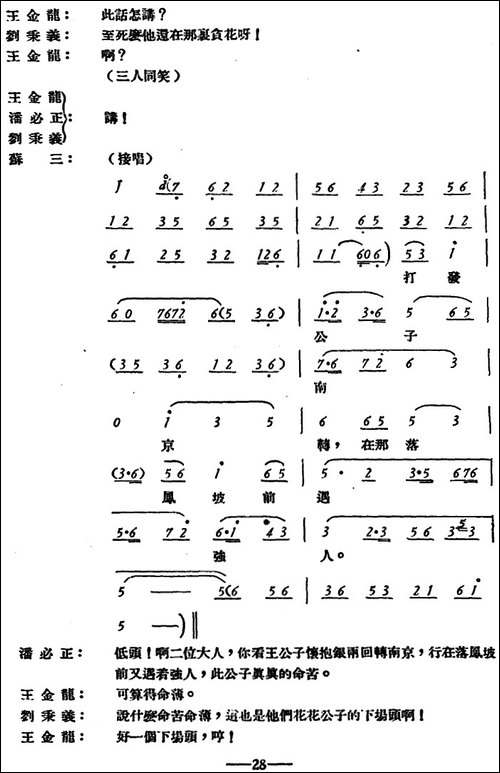 王金龍： 此話怎講？
劉秉義： 至死麼他還在那裏貪花呀！
王金龍： 啊？
（三人同笑）
王金龍
潘必正： 講！
劉秉義
蘇 三： （接唱）
6 2 1 2 | 5 6 4 3 2 3 5 6
1 2 3 5 6 5 3 5 | 2 1 6 5 3 2 1 2
6 1 2 5 3 2 1 2 6 | 1 1 6 0 6) 5 3 i
打 發
6 0 7 6 7 2 6 (5 3 6) | i·2 3·6 5 6 5
公 子
(3 5 3 6 1 2 3 6) | 7·6 7 2 6 3
南
0 i 3 5 | 6 6 5 5 3
京 轉，在那 落
(3·6) 5 6 i 6 5 | 5· 2 3·5 6 7 6
鳳 坡 前 遇
5·6 7 2 6·i 4 3 | 3 2·3 5 6
強 人。
5 — 5 (6 5 6 | 3 6 5 3 2 1 6 1
5 —) ‖
潘必正： 低頭！啊二位大人，你看王公子懷抱銀兩回轉南京，行在落鳳坡
前又遇着強人，此公子眞眞的命苦。
王金龍： 可算得命薄。
劉秉義： 說什麼命苦命薄，這也是他們花花公子的下場頭啊！
王金龍： 好一個下場頭，哼！
—28—